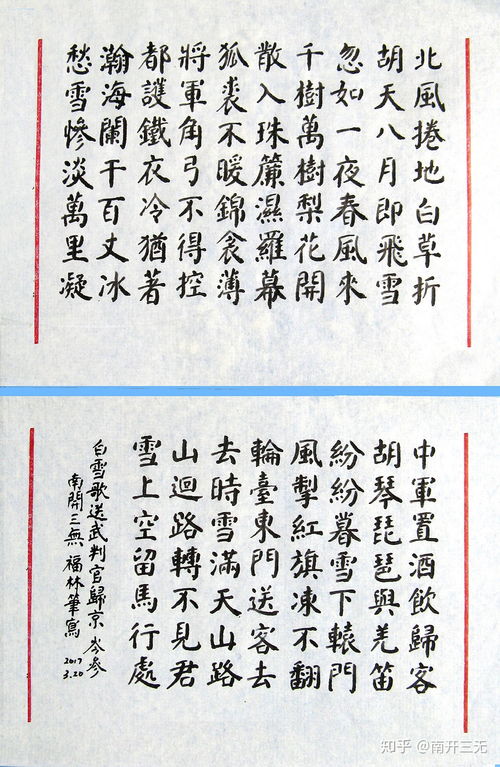 北風捲地白草折
胡天八月即飛雪
忽如一夜春風來
千樹萬樹梨花開
散入珠簾濕羅幕
狐裘不暖錦衾薄
將軍角弓不得控
都護鐵衣冷猶著
瀚海闌干百丈冰
愁雪慘淡萬里凝
中軍置酒飲歸客
胡琴琵琶與羌笛
紛紛暮雪下轅門
風掣紅旗凍不翻
輪臺東門送客去
去時雪滿天山路
山迴路轉不見君
雪上空留馬行處
白雪歌送武判官歸京 岑參
南開三無 福林筆寫
2017
3.20
知乎 @南开三无